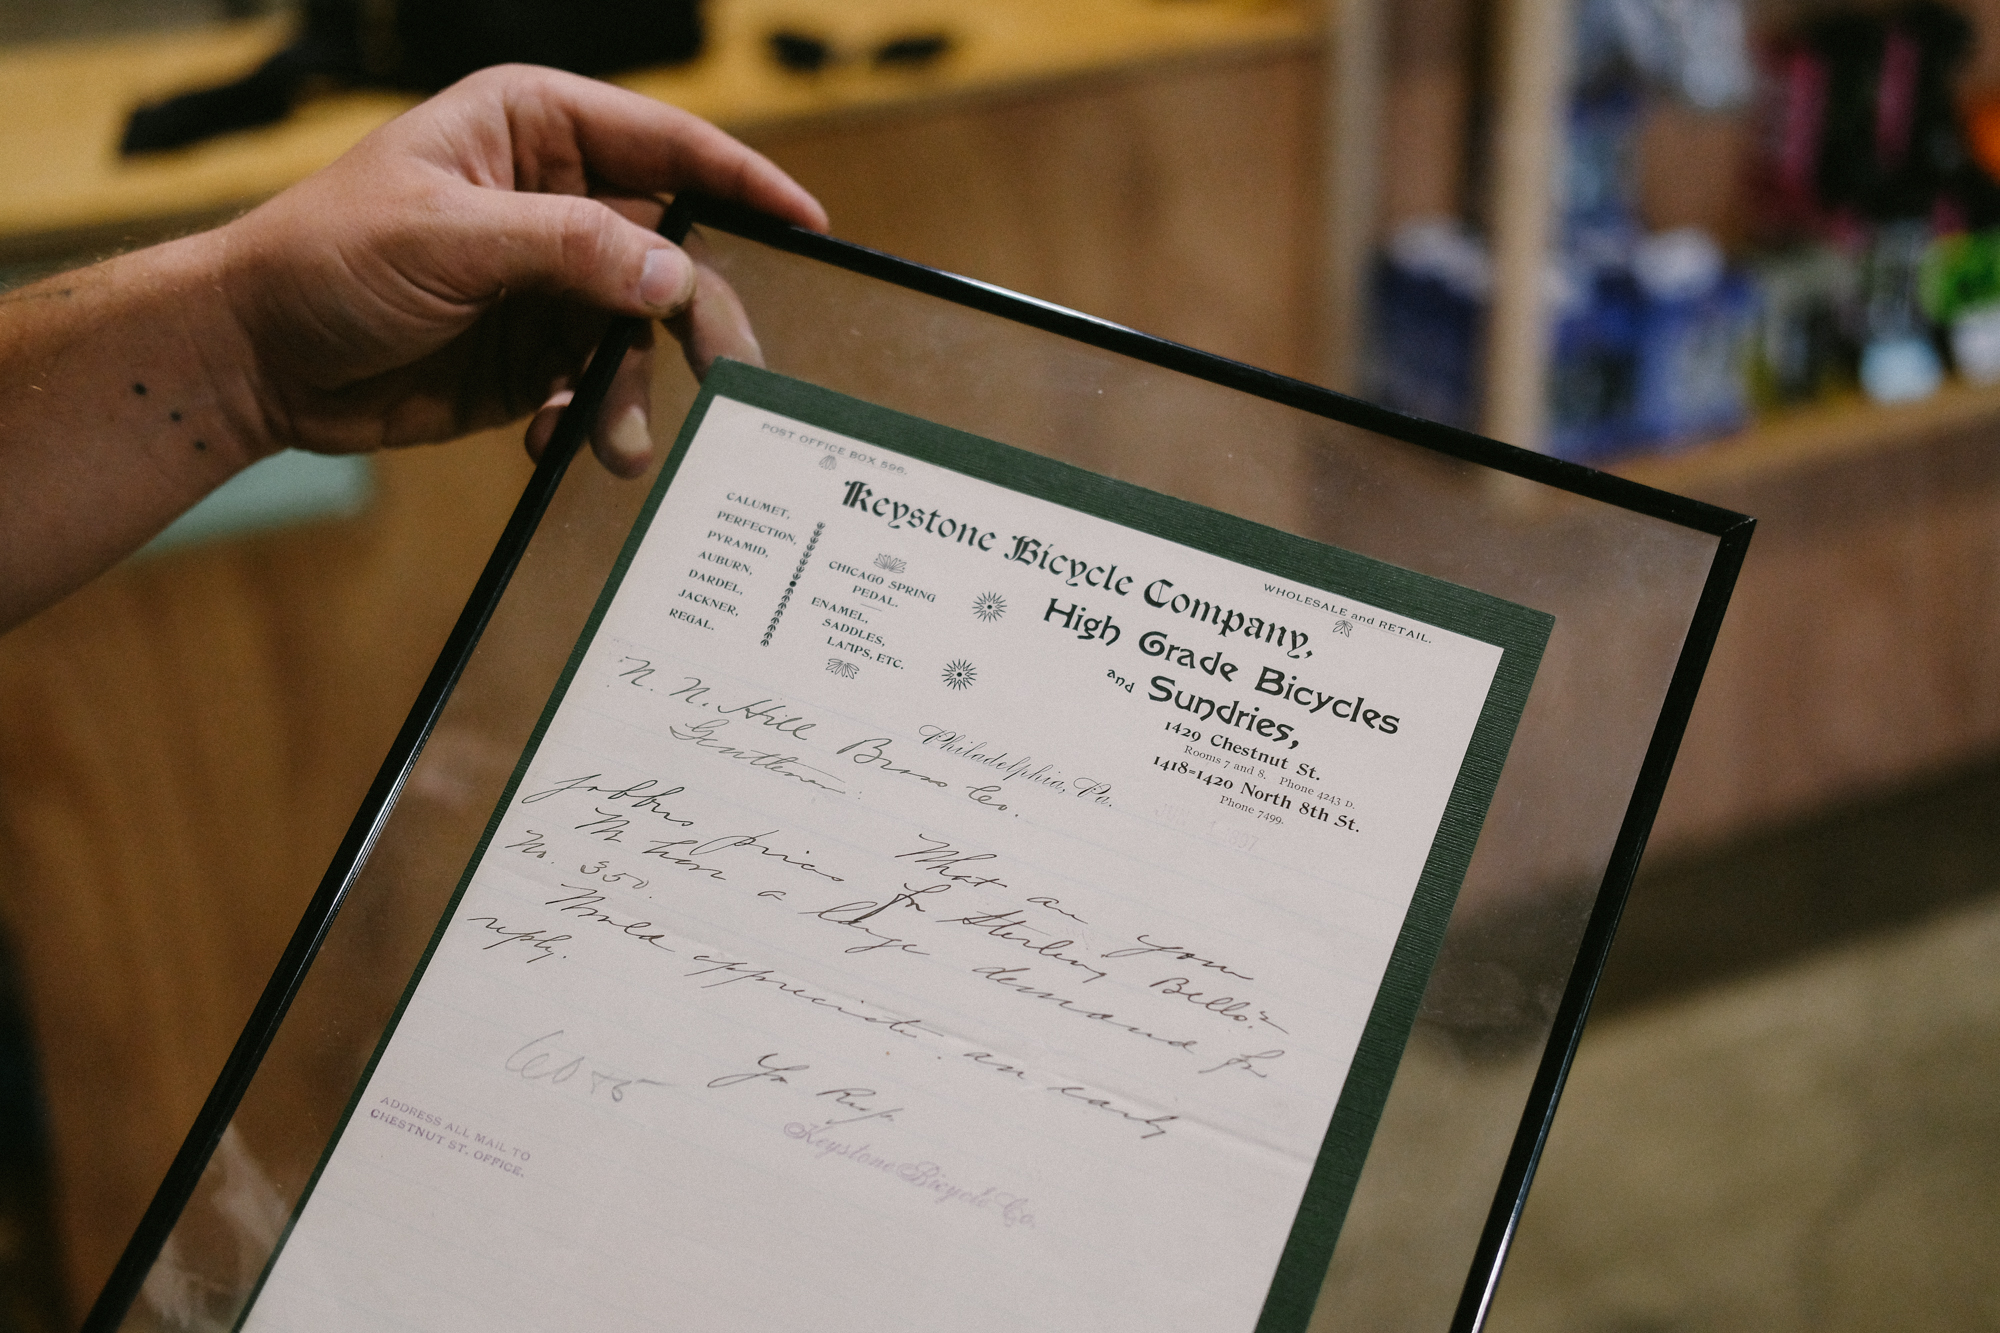 POST OFFICE BOX 596.
WHOLESALE and RETAIL.
Keystone Bicycle Company,
High Grade Bicycles
and Sundries,
1429 Chestnut St.
Rooms 7 and 8. Phone 4243 D.
1418=1420 North 8th St.
Phone 7499.
CALUMET,
PERFECTION,
PYRAMID,
AUBURN,
DARDEL,
JACKNER,
REGAL.
CHICAGO SPRING
PEDAL.
ENAMEL,
SADDLES,
LAMPS, ETC.
Philadelphia, Pa.
N. N. Hill Brass Co.
Gentlemen:
What are your
jobbers prices for Sterling Bells?
We have a large demand for
No. 350.
Would appreciate an early
reply.
Yrs Resp.
Keystone Bicycle Co.
ADDRESS ALL MAIL TO
CHESTNUT ST. OFFICE.